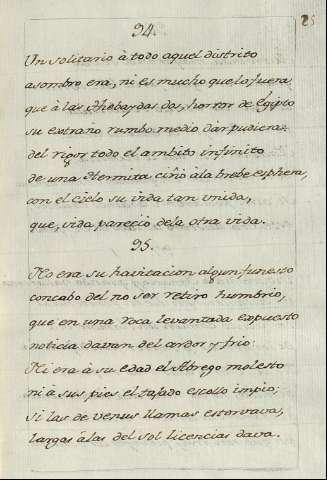 94.
25
Un solitario à todo aquel distrito
asombro era, ni es mucho que lo fuera
que à las Thebaydas dos, horror de Egipto
su extraño rumbo medio dar pudiera:
del rigor todo el ambito infinito
de una Hermita ciñò àla brebe esphera,
con el cielo su vida tan unida,
que, vida pareciò dela otra vida.
95.
No era su havitacion algun funesto
concabo del no ser retiro humbrio,
que en una roca levantada expuesto
noticia davan del ardor y frio
Ni era à su edad el Abrego molesto
ni à sus pies el tajado escollo impio;
si las de Venus llamas estorvava,
largas àlas del sol licencias dava.